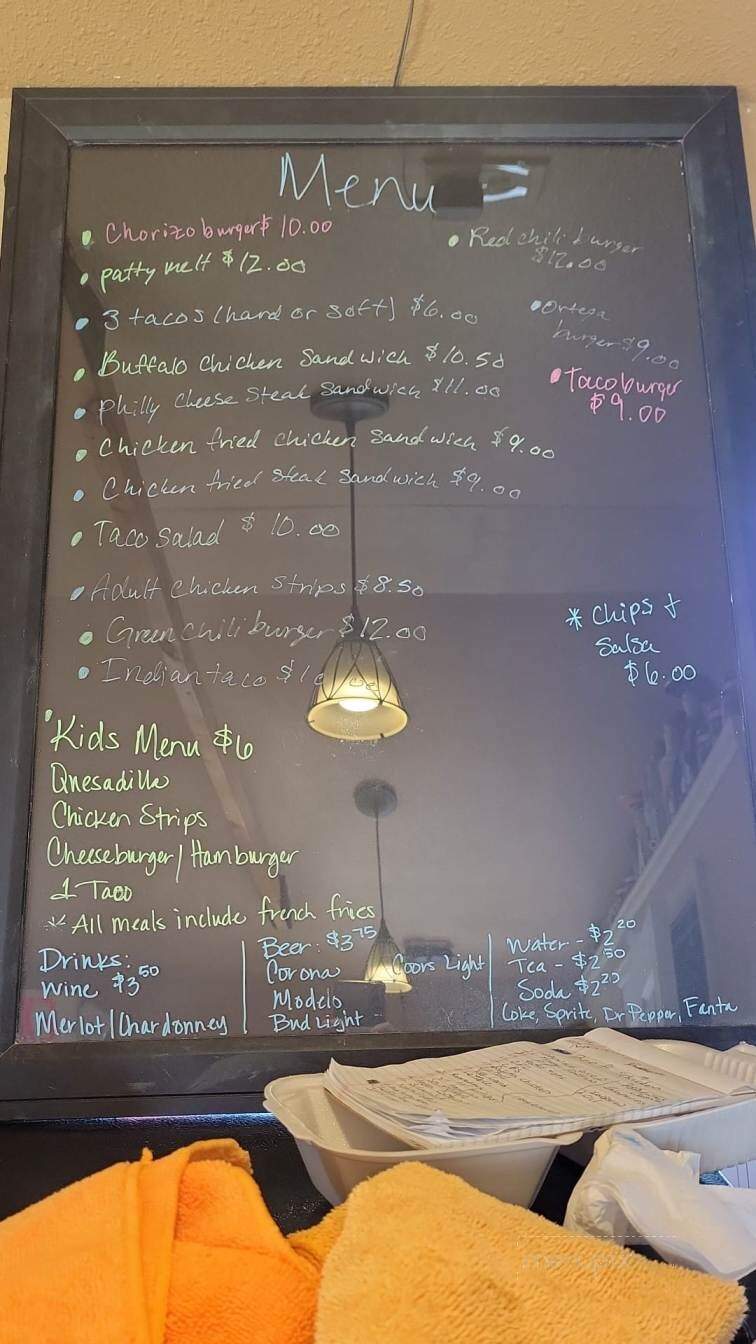 Menu
• Chorizo burger $ 10.00
• patty melt $12.00
• 3 tacos (hard or soft) $6.00
• Buffalo Chicken Sandwich $10.50
• Philly Cheese Steak Sandwich $11.00
• Chicken fried chicken sandwich $9.00
• Chicken fried steak sandwich $9.00
• Taco Salad $ 10.00
• Adult Chicken Strips $8.50
• Green chili burger $12.00
• Indian taco
• Red chili burger
$12.00
• Ortega
burger $9.00
• Taco burger
$9.00
* Chips &
Salsa
$6.00
Kids Menu $6
Quesadilla
Chicken Strips
Cheeseburger/Hamburger
1 Taco
* All meals include french fries
Drinks:
Wine $3.50
Merlot/Chardonney
Beer: $3.75
Corona
Modelo
Bud Light
Coors Light
Water - $2.20
Tea - $2.50
Soda $2.20
Coke, Sprite, Dr Pepper, Fanta